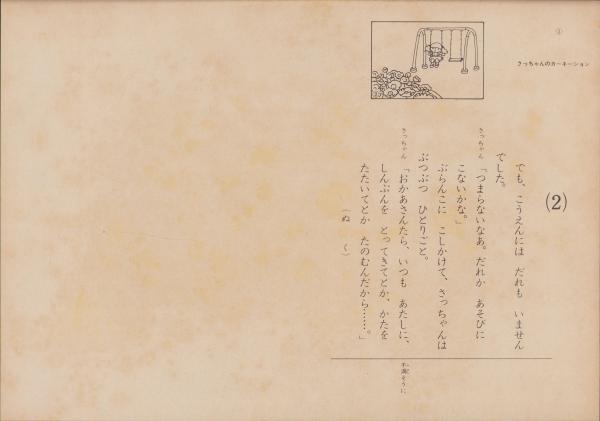 さっちゃんのカーネーション
(2)
でも、こうえんには だれも いません
でした。
さっちゃん「つまらないなあ。だれか あそびに
こないかな。」
ぶらんこに こしかけて、さっちゃんは
ぶつぶつ ひとりごと。
さっちゃん「おかあさんたら、いつも あたしに、
しんぶんを とってきてとか、かたを
たたいてとか たのむんだから……。」
不満そうに
(ぬ く)